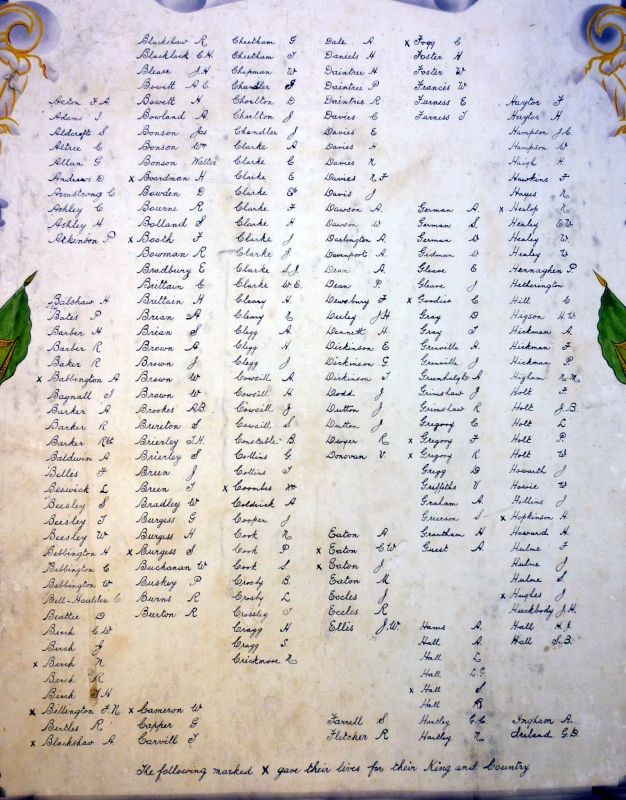 Acton F.A.
Adams J
Aldcroft S
Altree C
Allan G
Andrews D
Armstrong C
Ashley C
Ashley H
Atkinson P
Bailshaw H
Bates P
Barber H
Barber R
Baker R
x Babbington A
Bagnall J
Barker A
Barker R
Barker Rbt
Baldwin A
Belles F
Beswick L
Beesley S
Beesley J
Beesley W
Bebbington H
Bebbington C
Bebbington W
Bell-Houlden C
Beattie D
Birch C.W
Birch J
x Birch N
Birch R
Birch J.H
x Billington F.N
Birtles R
x Blackshaw A.
Blackshaw R
Blacklock C.H.
Blease J.H
Bowett A.C
Bowett H
Bowland A
Bonson Jas
Bonson Wm
Bonson Walter
x Boardman H
Bowden D
Bourne R
Bolland S
x Booth F
Bowman R
Bradbury E
Brittain C
Brittain H
Brian A
Brian S
Brown A
Brown J
Brown W
Brown W
Brookes A.B.
Brereton S
Brierley J.H.
Brierley S
Breen J
Breen J
Bradley W
Burgess G
Burgess H
x Burgess S
Buchanan W
Buskey P
Burns R
Burton R
x Cameron W
Capper G
Carvill J
Cheetham G
Cheetham J
Chapman W
Chandler J
Chorlton D
Chorlton J
Chandler J
Clarke A
Clarke C
Clarke E
Clarke
Clarke F
Clarke H
Clarke J
Clarke J
Clarke S.J.
Clarke W.E.
Cleary H
Cleary R
Clegg A
Clegg J
Cowsill A.
Cowsill H
Cowsill J
Cowsill S
Constable B.
Collins G.
Collins J
x Coombes Wm
Coldrick A
Cooper J
Cook N
Cook P
Cook S
Crosby B.
Crosby L
Crossley J
Cragg H
Cragg S
Crickmore N
Dale A
Daniels H
Daintree H
Daintree P
Daintree R
Davies C
Davies E
Davies H
Davies N
Davies N.F
Davis J
Dawson A.
Dawson W
Darlington A.
Davenport A.
Dean A.
Dean P.
Dewsbury F
Derley J.H
Dennett H
Dickinson E
Dickinson G.
Dickinson J
Dodd J
Dutton J
Dutton J
Dwyer R
Donovan V
Eaton A
x Eaton C.W
x Eaton J
Eaton M
Eccles J
Eccles R
Ellis J.W
Farrell S
Fletcher R
x Fogg C
Foster H
Foster W
Francis W
Furness E
Furness J
German A.
German S.
German W
Gidman W
Gleave E
Gleave J
x Goodier C
Gray D
Gray J
Grenville H.
Grenville J
Greenhalgh A
Grimshaw J
Grimshaw R
Gregory C
x Gregory F
x Gregory R
Gregg D
Griffiths V
Graham A.
Grierson S
Grantham H
Guest A.
Hams A.
Hall A
Hall L
Hall L.G.
x Hall S
Hall R
Hartley G.C
Hartley N.
Haytor F
Hayler H
Hampson J.C
Hampson W
Haigh H.
Hawkins F
Hayes N
x Heslop R
Healey E.W
Healey W.
Healey W
Hernagher P.
Hetherington
Hill C
Hegson H.W
Hickman A.
Hickman F
Hickman P.
Higham N.M.
Holt F.
Holt J.B.
Holt L
Holt P.
Holt W
Howarth J
Howie W
Hollins J
x Hopkinson H
Howard H.
Hulme F
Hulme J
Hulme S.
x Hughes J
Huckbody J.H.
Hall H.J.
Hall S.B.
Ingham A.
Ireland G.B
The following marked X gave their lives for their King and Country